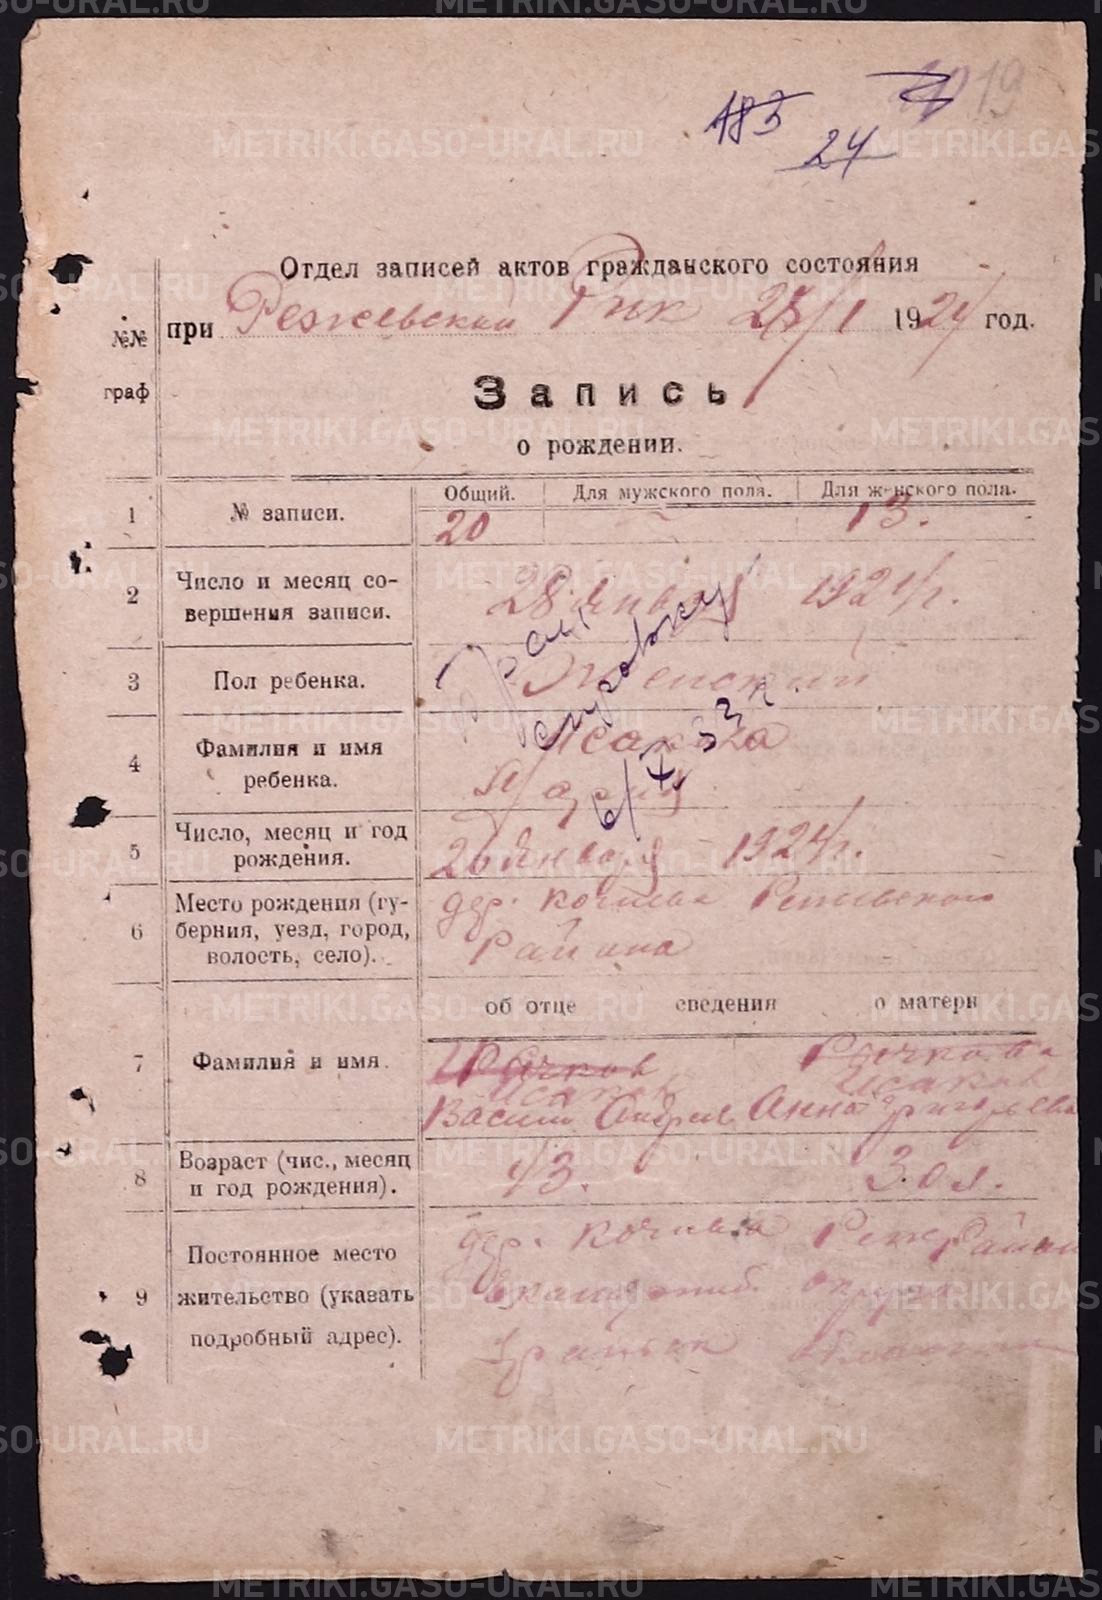 183
24
19
Отдел записей актов гражданского состояния
при Режевской Рик 28/I 1924 год.
№№
граф
Запись
о рождении.
Общий. Для мужского пола. Для женского пола.
1 № записи. 20 13.
2 Число и месяц совершения записи. 28 января 1924 г.
3 Пол ребенка. Женский
4 Фамилия и имя ребенка. Исакова
Мария
справку
6/X 33 г
5 Число, месяц и год рождения. 26 января 1924 г.
6 Место рождения (губерния, уезд, город, волость, село). дер. Кочнева Режевского
Района
об отце сведения о матери
7 Фамилия и имя. Рычков Рычкова
Исаков Исаков
Васили Андреев Анна Григорьева
8 Возраст (чис., месяц и год рождения). 43. 30 л.
9 Постоянное место жительство (указать подробный адрес). дер. Кочнева Реж Район
округа
области
METRIKI.GASO-URAL.RU